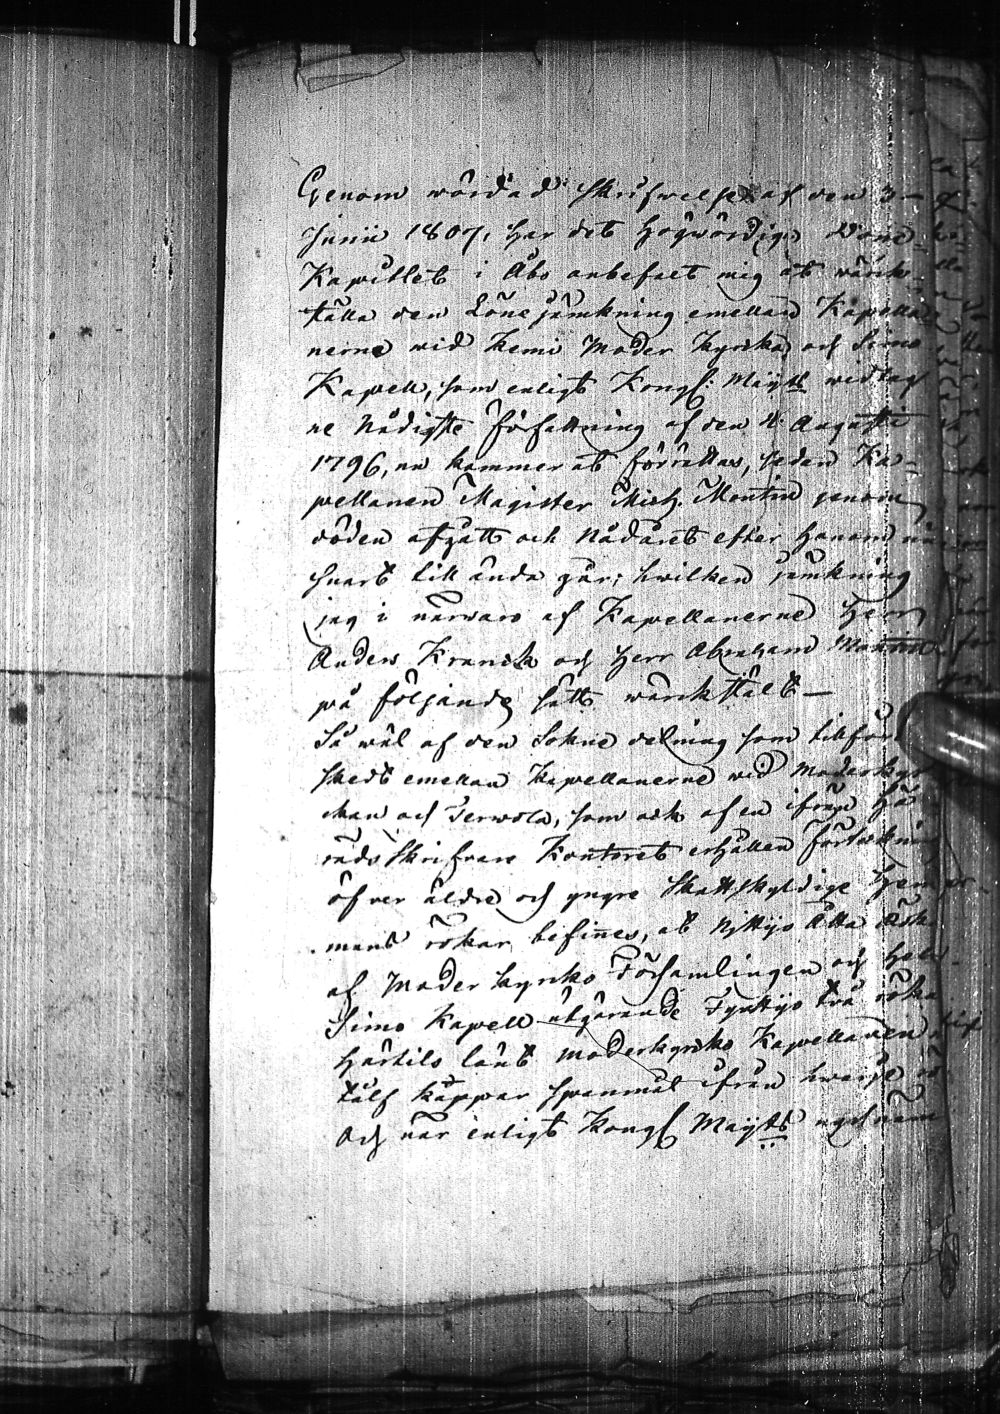 Genom wördad skrifwelse af den 3
Junii 1807, har det Högwördige Dom
Kapitlet i Åbo anbefalt mig at wärk
ställa den Löne jämkning emellan Kapella
nerne wid Kemi Moder kyrka och Simo
Kapell, som enligt Kongl: Maÿts widtag
ne Nådigste författning af den 4 Augusti
1796, nu kommer at förrättas, sedan Ka-
pellanen Magister Mich. Montin genom
döden afgått och Nådåret efter honom nu
snart till ända går; hwilken jemkning
jag i närwaro af Kapellanerne Herr
Anders Kranck och Herr Abraham Montin
på följande sätt wärkstält —
Så wäl af den Sokne delning som tilför
skedt emellan Kapellanerne wid Moderkyr
kan och Terwola, som ock af en ifrån Hä
rads Skrifware Kontoret erhållen Förtekning
öfver äldre och yngre Skattskyldige Hem
mans rökar befinnes, at Nittijo Åtta Rök
af Moder kyrko Församlingen och hela
Simo Kapell utgörande Fyrttijo två röka
härtils lönt Moderkyrko Kapellanen
tålf kappar spanmål ifrån hwarje
Och när enligt Kongl Maÿts